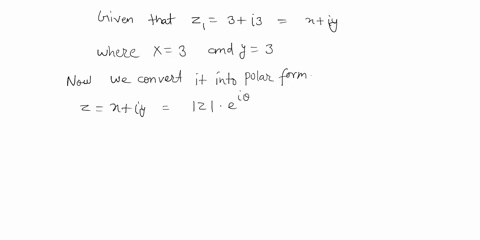 Given that z₁ = 3 + i3 = x + iy
where x = 3 and y = 3
Now we convert it into polar form.
z = x + iy = |z| · e^{iθ}